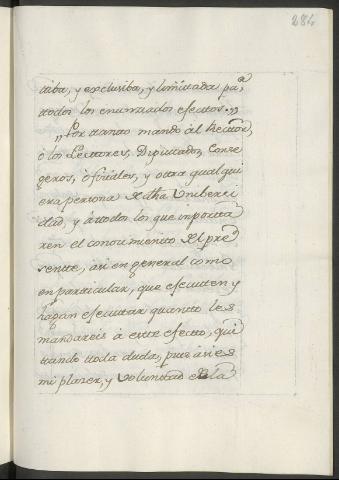 284
tiba, y exclusiba, y limitada pa,
todos los enunciados efectos.,,
,,Por tanto mando àl Rector,
ò los Lectores, Diputados, Conse
geros, oficiales, y otra qualqui
era persona dha Uniberci
dad, y à todos los que inporta
ren el conocimiento del pre
sentte, asi en general como
en particular, que ejecuten y
hagan ejecutar, quantto les
mandareis à este efecto, qui
tando toda duda, pues asi es
mi plazer, y voluntad de la